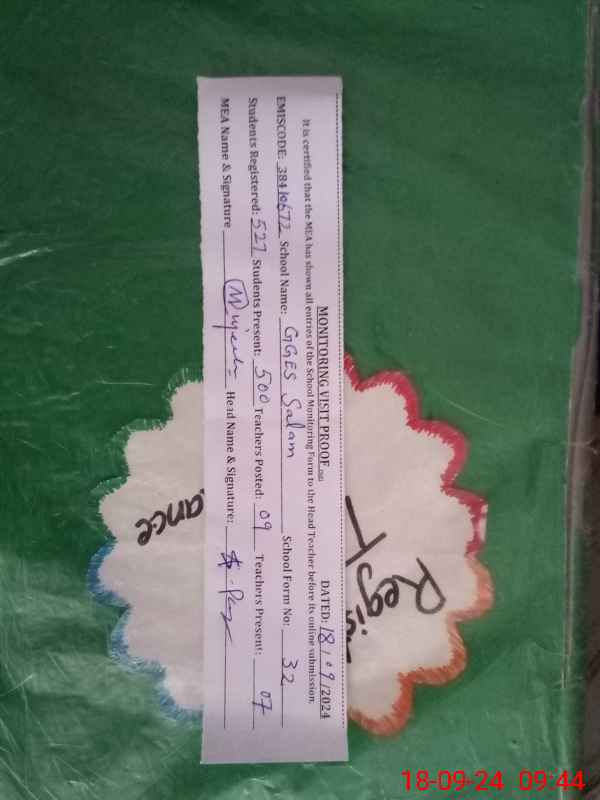 MONITORING VISIT PROOF
DATED: 18/09/2024
It is certified that the MEA has shown all entries of the School Monitoring Form to the Head Teacher before its online submission.
EMISCODE: 38410672 School Name: GGES Salam School Form No: 32
Students Registered: 527 Students Present: 500 Teachers Posted: 09 Teachers Present: 07
MEA Name & Signature Head Name & Signature:
Regis
ance
18-09-24 09:44